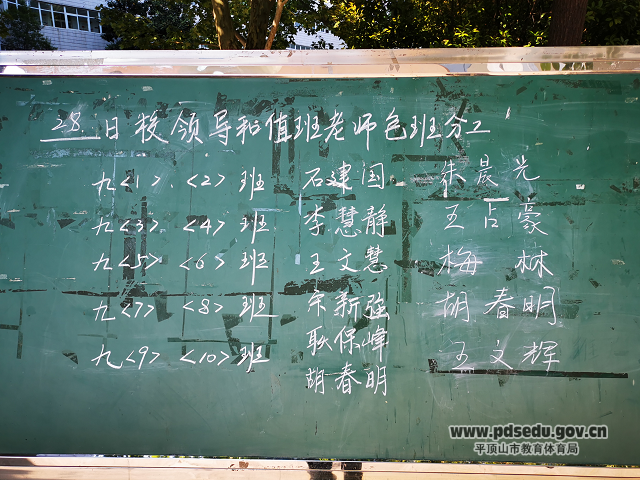 28日校领导和值班老师包班分工
九<1>、<2>班 石建国 朱晨光
九<3> <4>班 李慧静 王占豪
九<5> <6>班 王文慧 梅林
九<7> <8>班 宋新强 胡春明
九<9> <10>班 耿保峰 王文辉
胡春明
www.pdsedu.gov.cn
平顶山市教育体育局